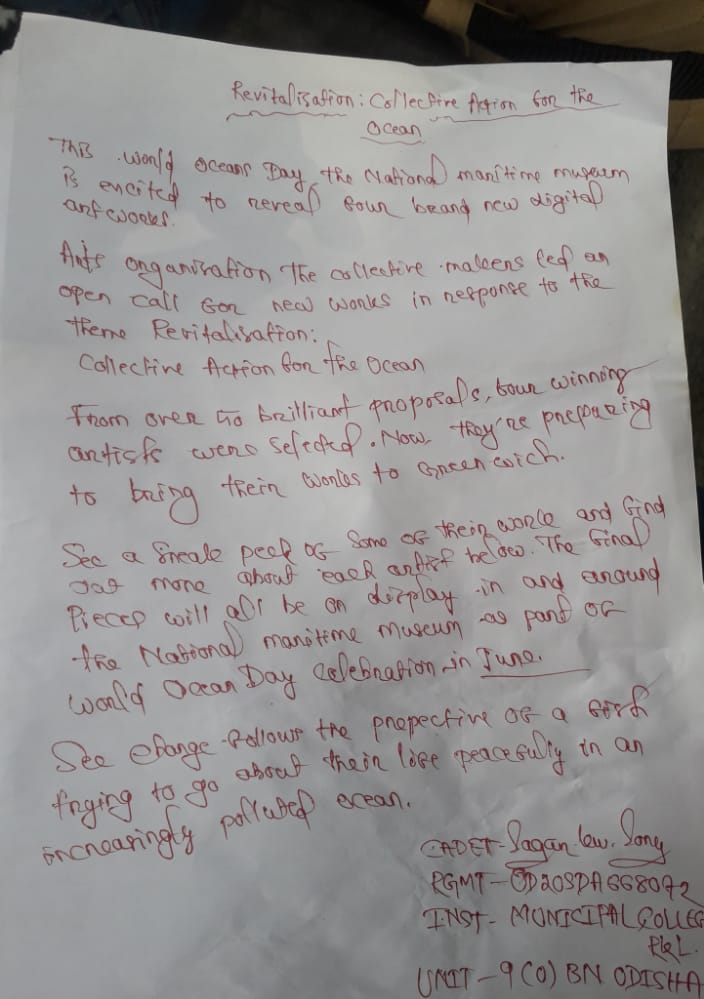 Revitalisation: Collective Action for the
Ocean
This world oceans Day, the National maritime museum
is excited to reveal four brand new digital
artworks.
Arts organisation the collective makers led an
open call for new works in response to the
theme Revitalisation:
Collective Action for the Ocean
From over 40 brilliant proposals, four winning
artists were selected. Now they're preparing
to bring their works to Greenwich.
See a sneak peek of some of their work and find
out more about each artist below. The final
Pieces will all be on display in and around
the National maritime museum as part of
world Ocean Day celebration in June.
See change follows the prepective of a fish
trying to go about their life peacefully in an
increasingly polluted ocean.
CADET- Sagar
RGMT- OD20SDA668072
INST- MUNICIPAL COLLEG
RKL.
UNIT-9(O) BN ODISHA